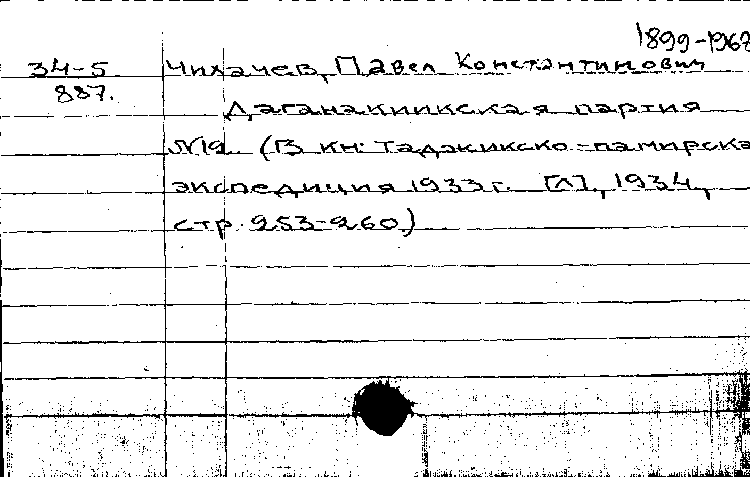 1899-1968
34-5 Чихачев, Павел Константинович
887. Даганакиикская партия
№19. (В кн: Таджикско-памирска
экспедиция 1933 г. [Л], 1934,
стр. 253-260)